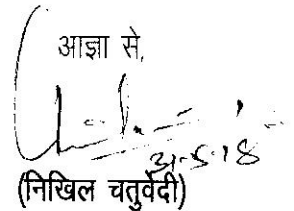 आज्ञा से,
31-5-18
(निखिल चतुर्वेदी)